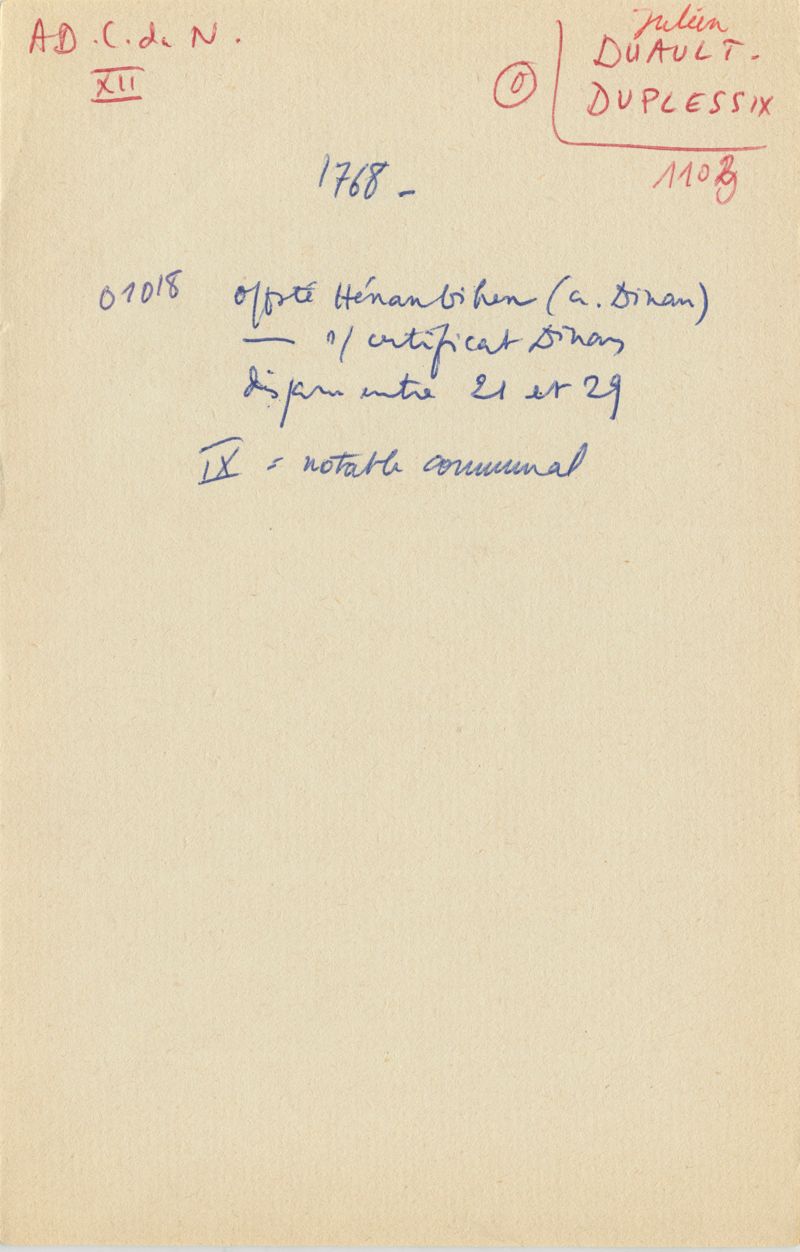 AD.C.du N.
XII
O
Julien
DUAULT-
DUPLESSIX
110
1768-
01018 offsté Hénanbihen (a. Dinan)
— s/ certificat Dinan
disparu entre 21 et 29
IX = notable communal